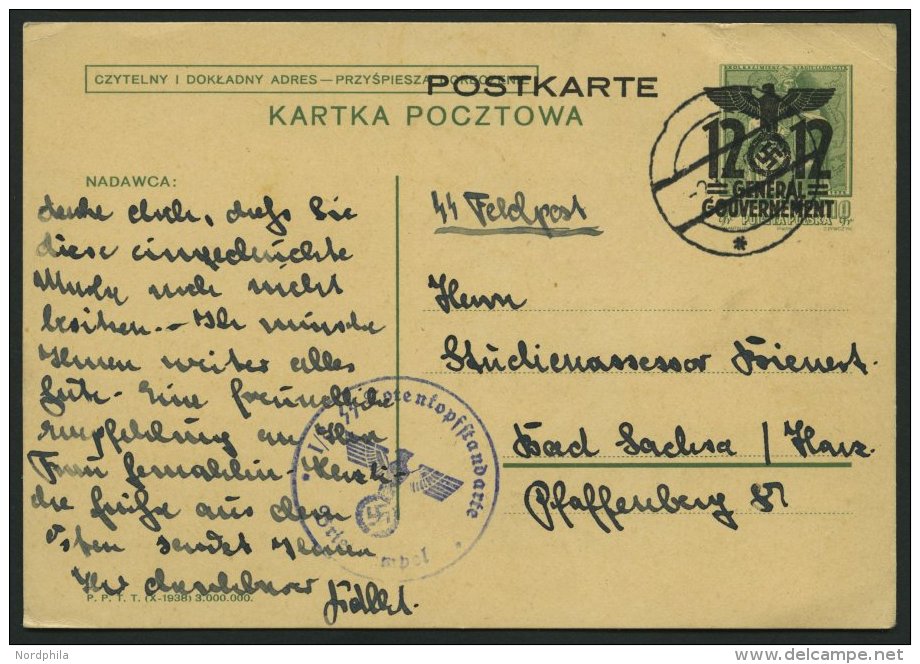 CZYTELNY I DOKŁADNY ADRES — PRZYŚPIESZA DORĘCZENIE
POSTKARTE
KARTKA POCZTOWA
12 12
GENERAL
GOUVERNEMENT
10
gr POCZTA POLSKA gr
NADAWCA:
denke doch, daß Sie
diese eingedrückte
nicht
besitzen. – Ich wünsche
Ihnen weiter alles
Gute. Eine freundliche
Empfehlung an Ihre
Frau Gemahlin. Herzli-
che Grüße aus dem
Osten sendet Ihnen
Ihr dankbarer
SS Feldpost
Herrn
Studienassessor Bienert.
Bad Sachsa / Harz
Pfaffenberg 87
SS Totenkopfstandarte
P. P. T. T. (X-1938) 3.000.000.
Nordphila
delcampe.net